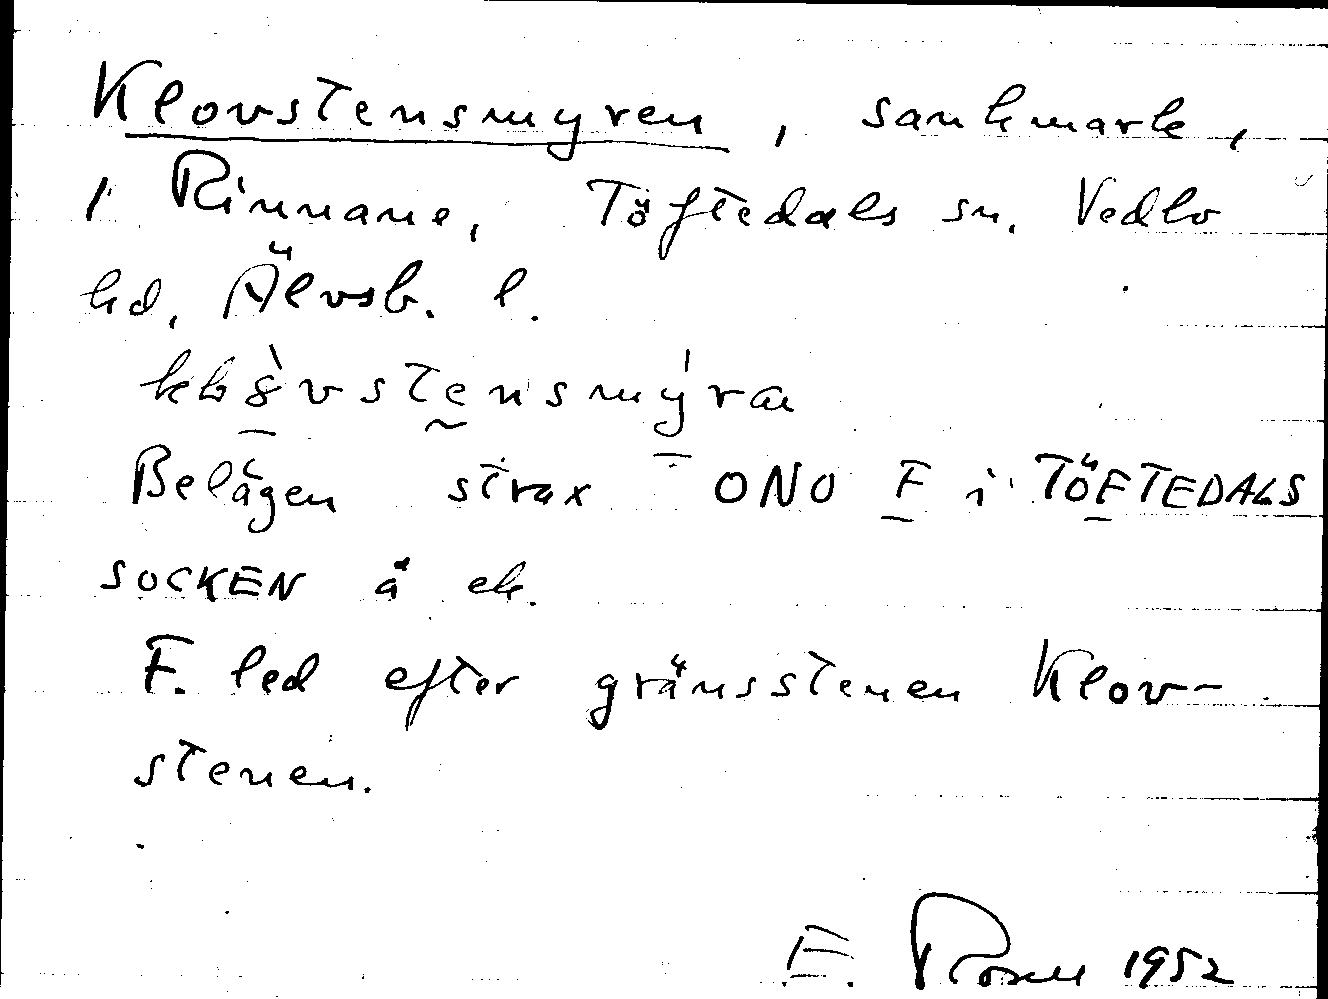 Klovstensmyren, sankmark,
i Rinnane, Töftedals sn. Vedbo
hd, Älvsb. l.
Belägen strax ONO F i TÖFTEDALS
SOCKEN å ek.
F. led efter gränsstenen Klov-
stenen.
E. Rosell 1952